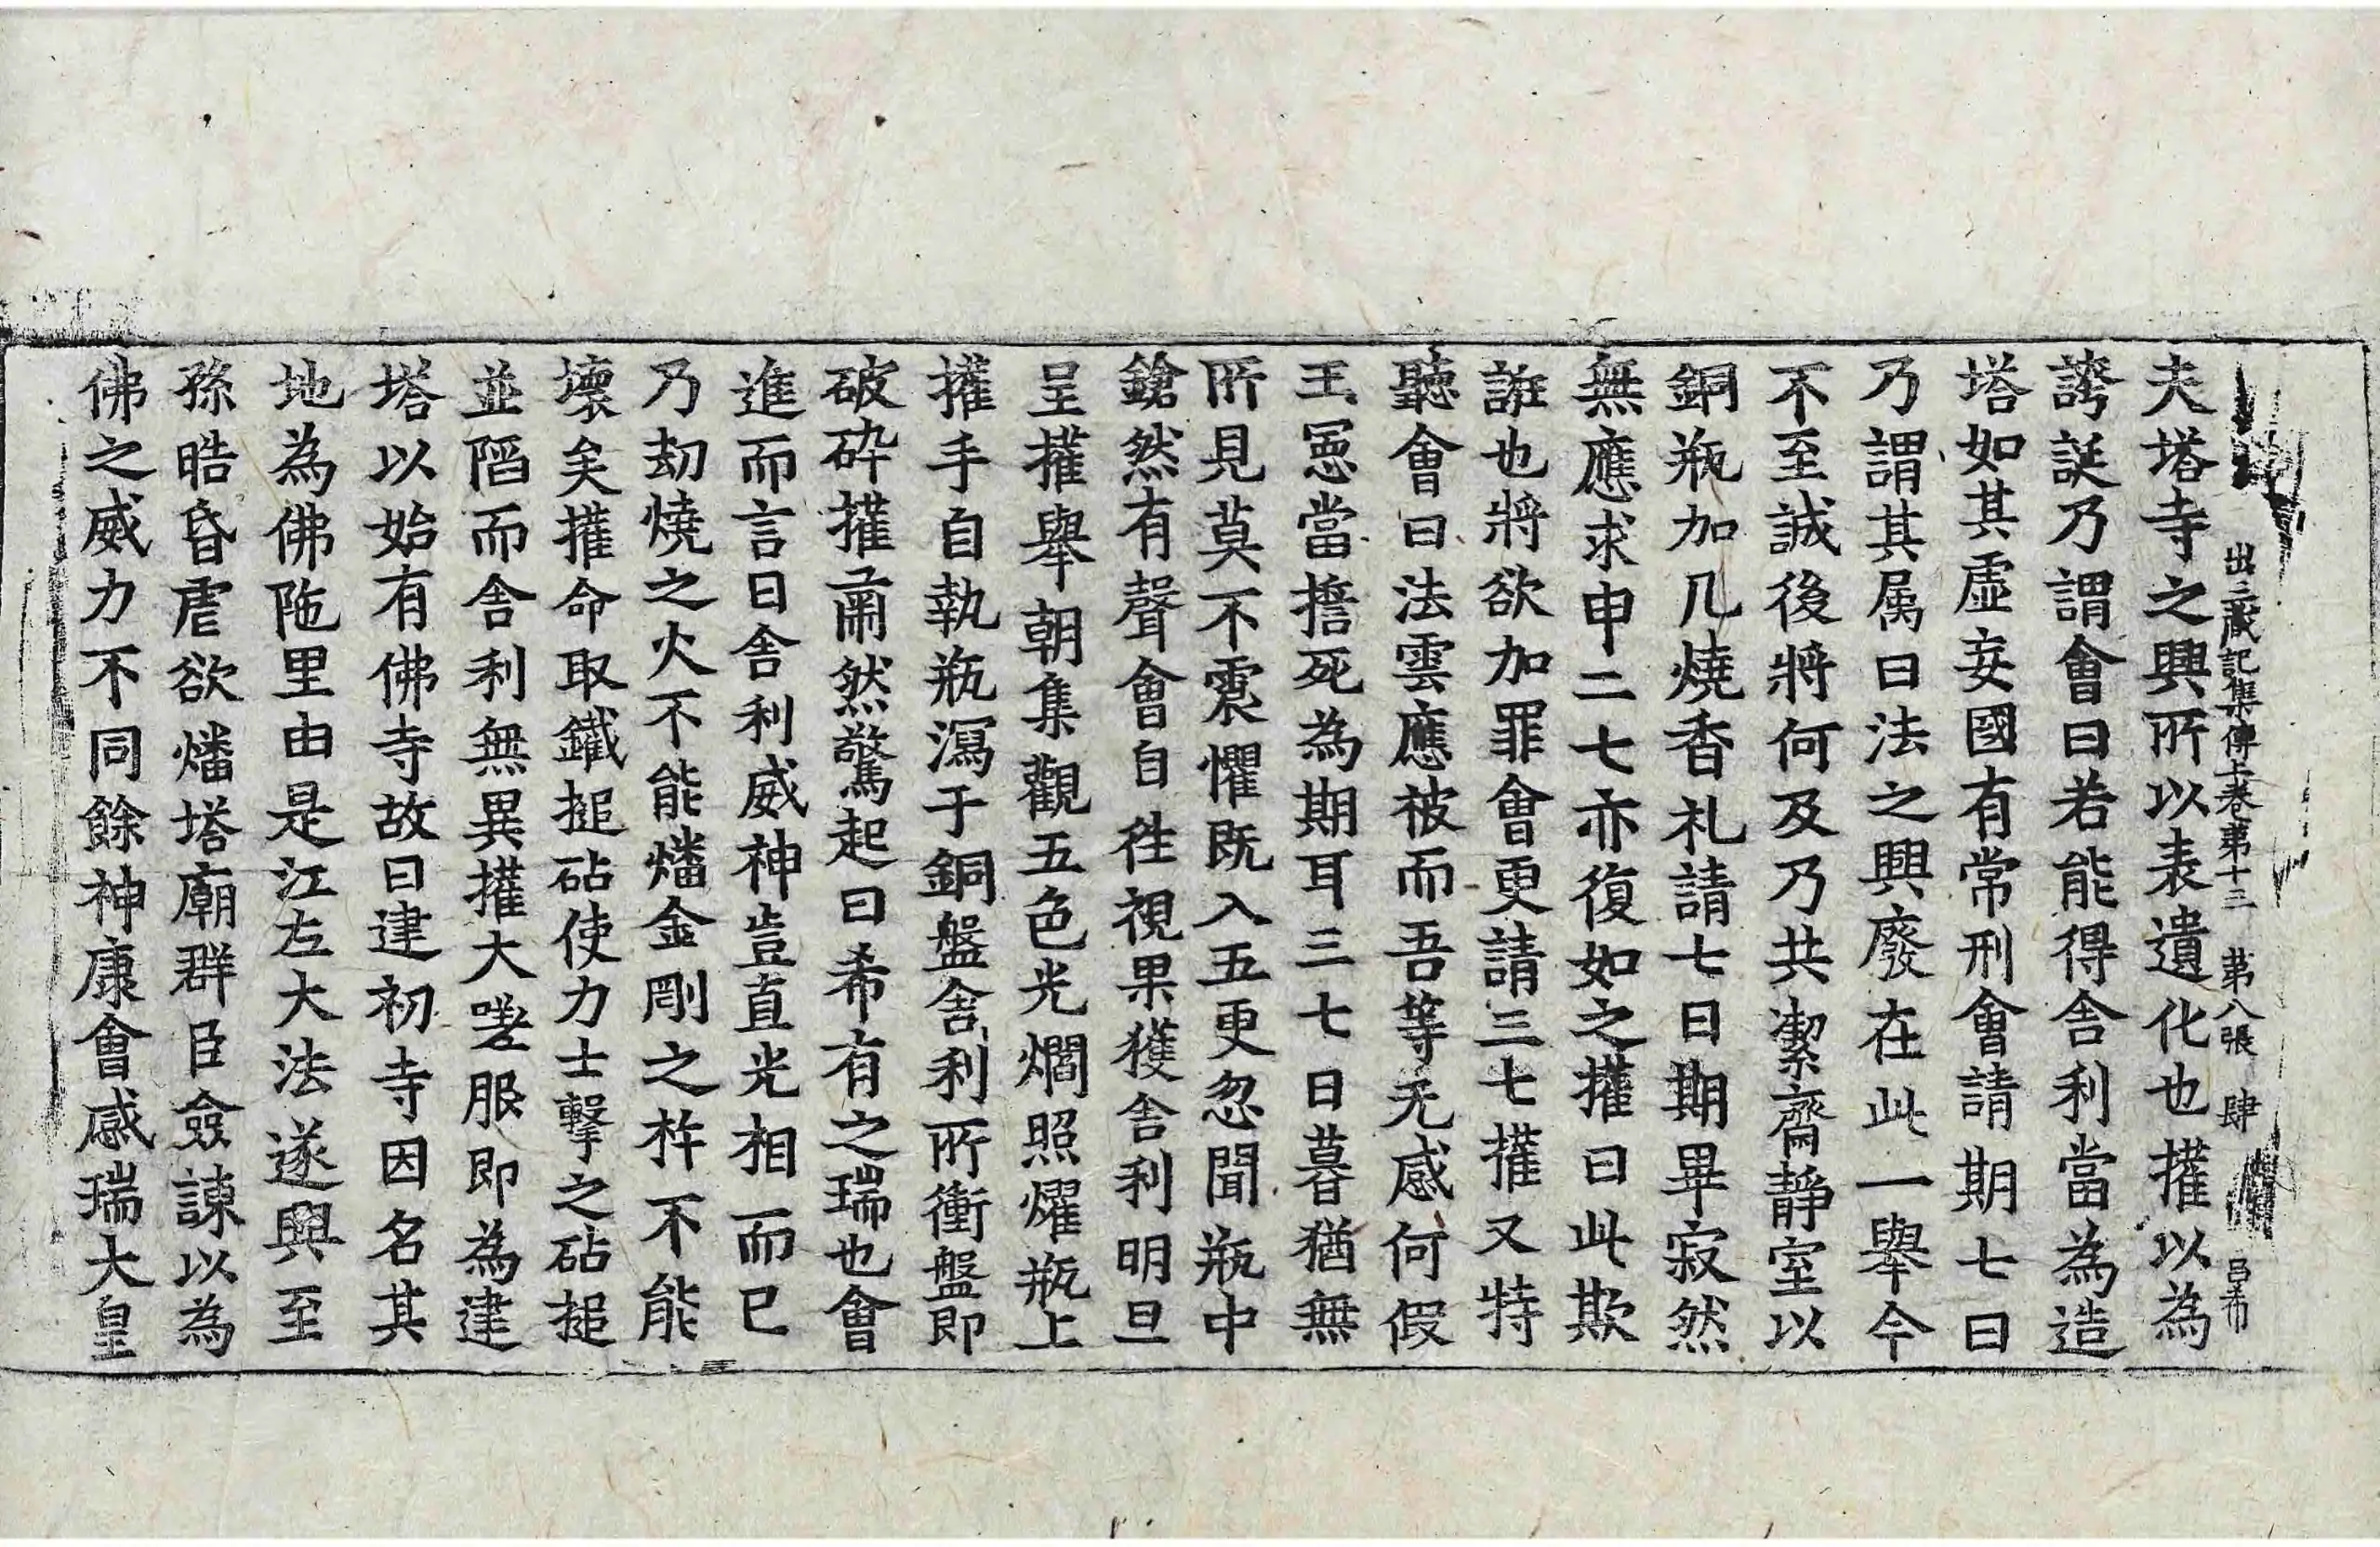 出三藏記集傳上卷第十三　第八張　肆
夫塔寺之興所以表遺化也權以為
誇誕乃謂會曰若能得舍利當為造
塔如其虛妄國有常刑會請期七日
乃謂其属曰法之興廢在此一舉今
不至誠後將何及乃共潔齋靜室以
銅瓶加几燒香礼請七日期畢寂然
無應求申二七亦復如之權曰此欺
誑也將欲加罪會更請三七權又特
聽會曰法雲應被而吾等无感何假
王憲當擔死為期耳三七日暮猶無
所見莫不震懼既入五更忽聞瓶中
鎗然有聲會自往視果獲舍利明旦
呈權舉朝集觀五色光爓照燿瓶上
權手自執瓶瀉于銅盤舍利所衝盤即
破碎權肅然驚起曰希有之瑞也會
進而言曰舍利威神豈直光相而已
乃劫燒之火不能燔金剛之杵不能
壞矣權命取鐵搥砧使力士擊之砧搥
並陷而舍利無異權大嗟服即為建
塔以始有佛寺故曰建初寺因名其
地為佛陁里由是江左大法遂興至
孫晧昏虐欲燔塔廟群臣僉諫以為
佛之威力不同餘神康會感瑞大皇